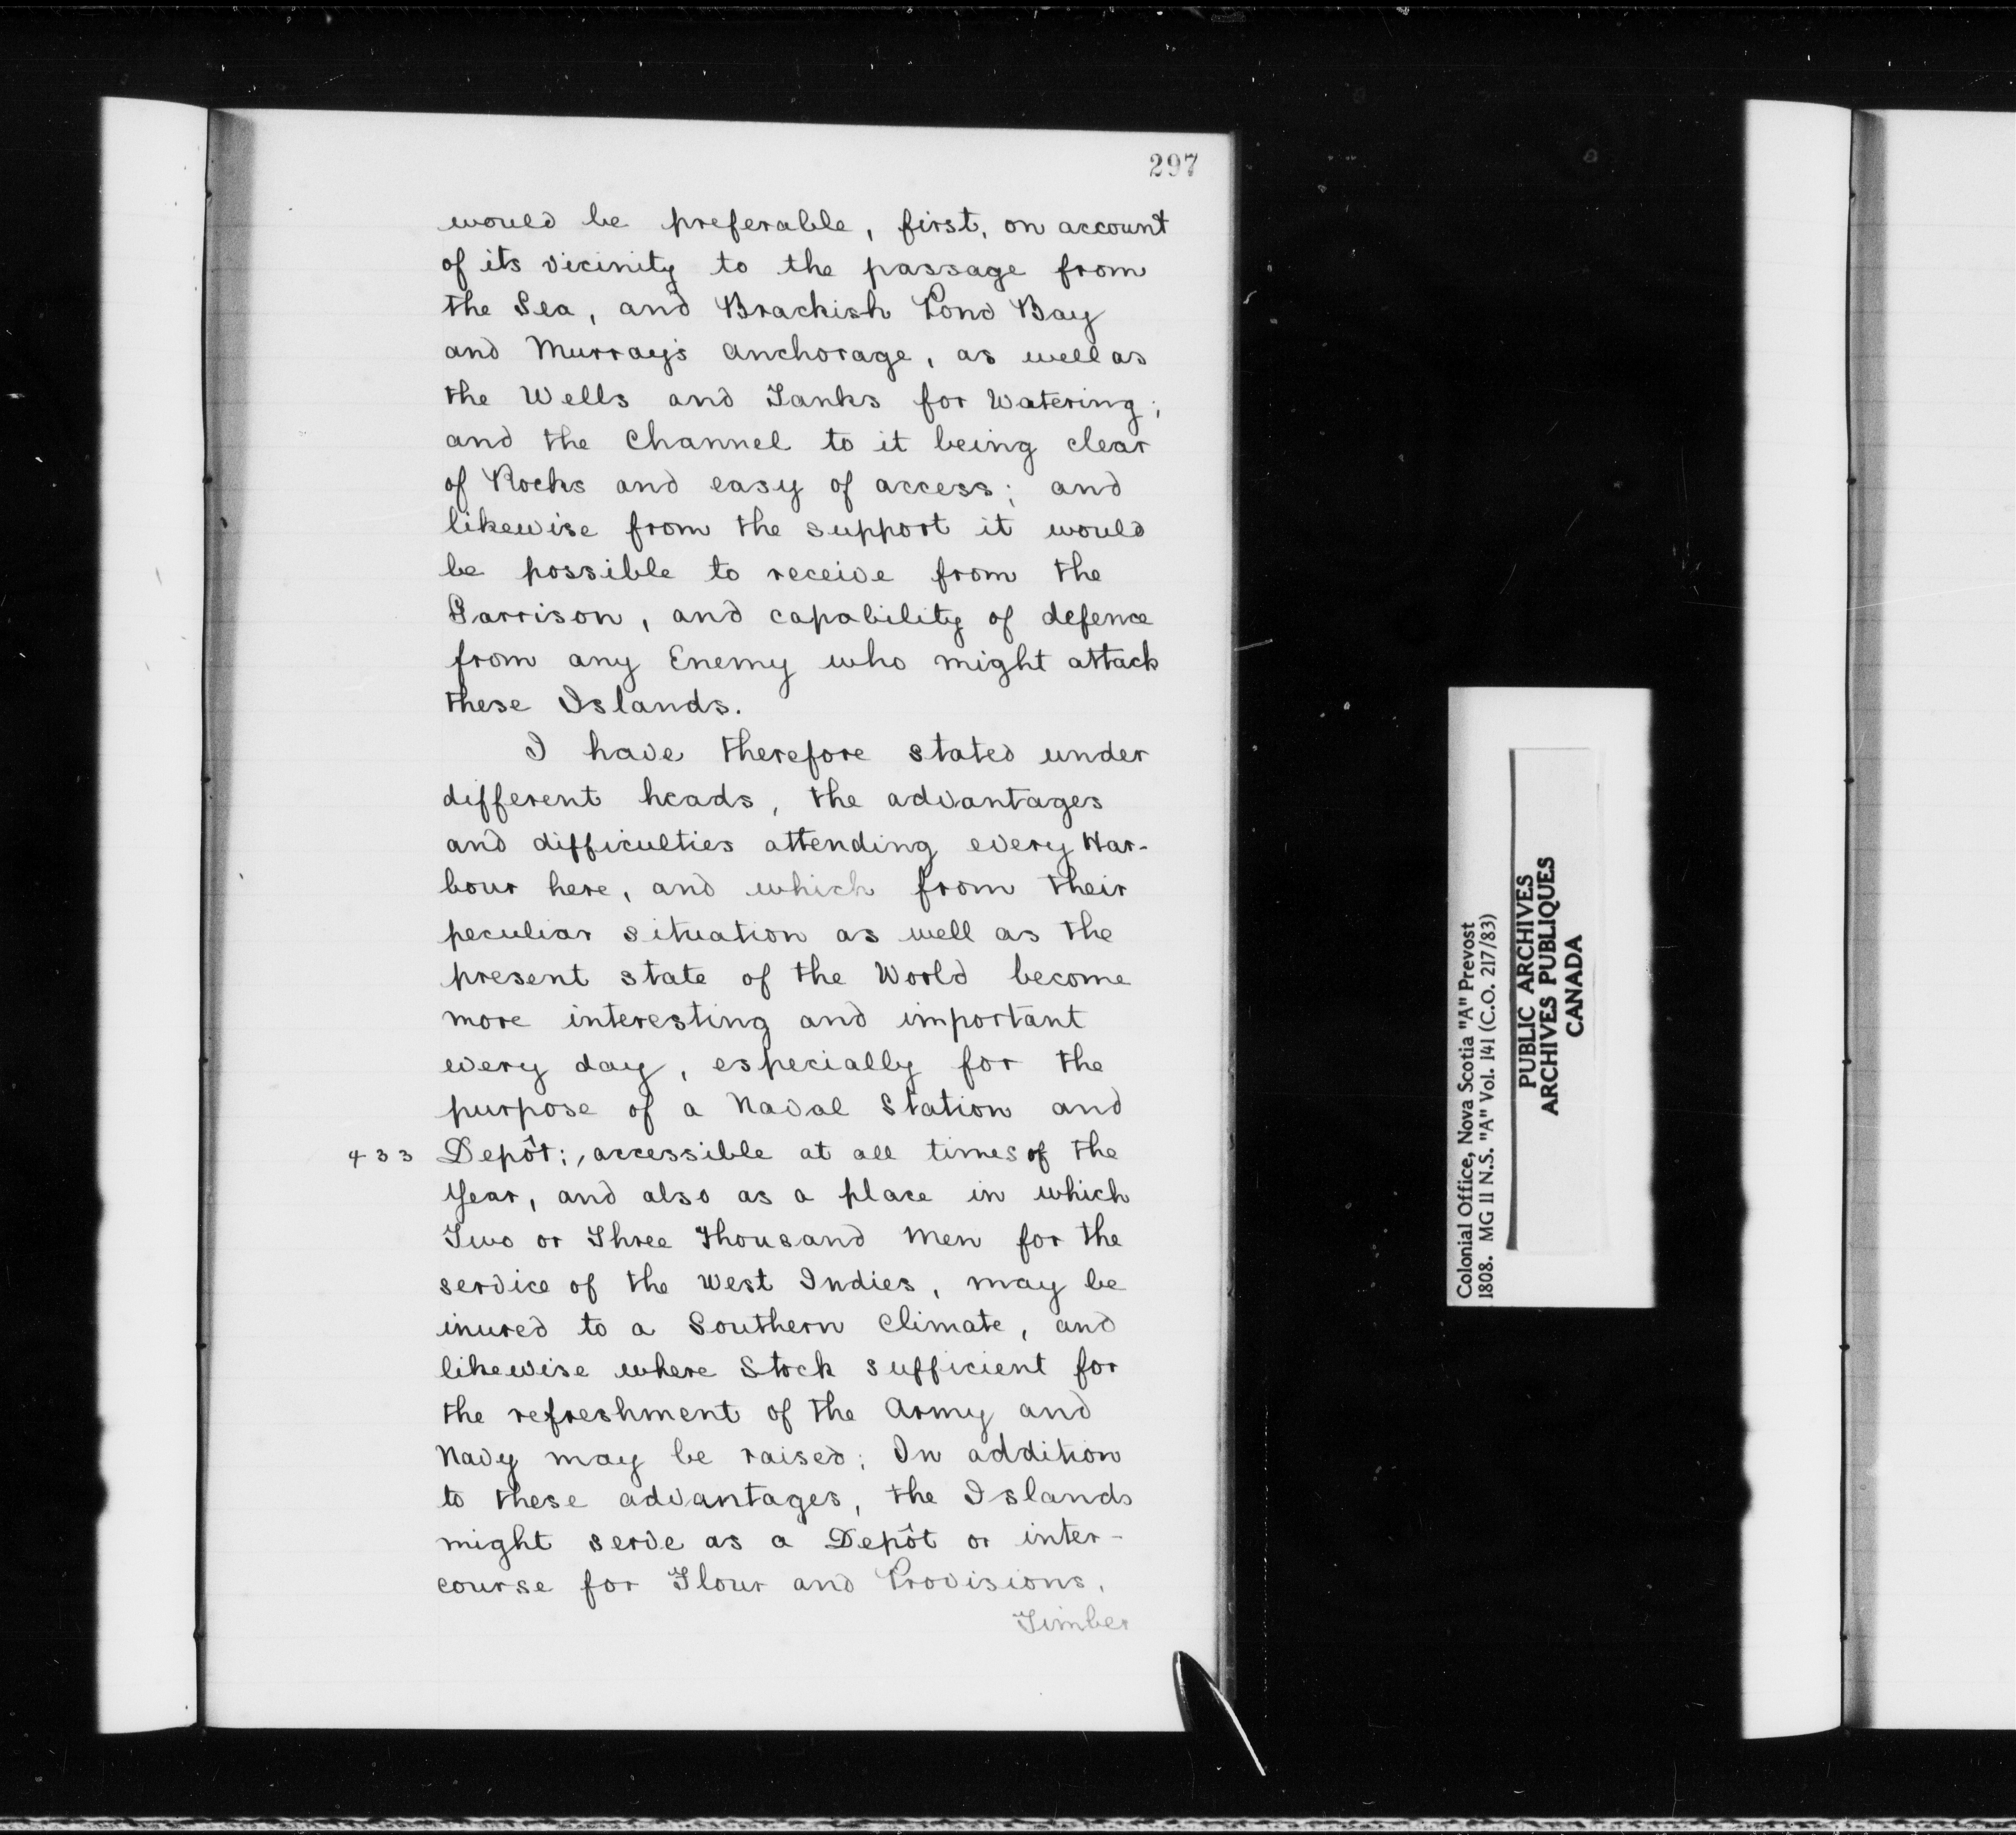 297
would be preferable, first, on account
of its vicinity to the passage from
the Sea, and Brackish Pond Bay
and Murray's Anchorage, as well as
the Wells and Tanks for Watering;
and the Channel to it being clear
of Rocks and easy of access; and
likewise from the support it would
be possible to receive from the
Garrison, and capability of defence
from any Enemy who might attack
these Islands.
I have therefore stated under
different heads, the advantages
and difficulties attending every Har-
bour here, and which from their
peculiar situation as well as the
present state of the World become
more interesting and important
every day, especially for the
purpose of a Naval Station and
433 Depôt;, accessible at all times of the
Year, and also as a place in which
Two or Three Thousand Men for the
service of the West Indies, may be
inured to a Southern Climate, and
likewise where Stock sufficient for
the refreshment of the Army and
Navy may be raised; In addition
to these advantages, the Islands
might serve as a Depôt or inter-
course for Flour and Provisions,
Timber
Colonial Office, Nova Scotia "A" Prevost
1808. MG 11 N.S. "A" Vol. 141 (C.O. 217/83)
PUBLIC ARCHIVES
ARCHIVES PUBLIQUES
CANADA